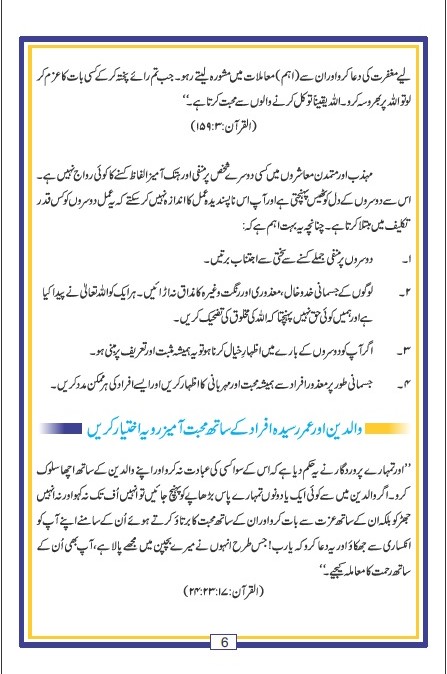 لیے مغفرت کی دعا کرو اور ان سے (اہم) معاملات میں مشورہ لیتے رہو۔ جب تم رائے پختہ کر کے کسی بات کا عزم کر
لو تو اللہ پر بھروسہ کرو۔ اللہ یقیناً توکل کرنے والوں سے محبت کرتا ہے۔‘‘
(القرآن:۳:۱۵۹)
مہذب اور متمدن معاشروں میں کسی دوسرے شخص پر منفی اور ہتک آمیز الفاظ کسنے کا کوئی رواج نہیں ہے۔
اس سے دوسروں کے دل کو ٹھیس پہنچتی ہے اور آپ اس ناپسندیدہ عمل کا اندازہ نہیں کر سکتے کہ یہ عمل دوسروں کو کس قدر
تکلیف میں مبتلا کرتا ہے۔ چنانچہ یہ بہت اہم ہے کہ:
۱۔ دوسروں پر منفی جملے کسنے سے سختی سے اجتناب برتیں۔
۲۔ لوگوں کے جسمانی خدوخال، معذوری اور رنگت وغیرہ کا مذاق نہ اڑائیں۔ ہر ایک کو اللہ تعالیٰ نے پیدا کیا
ہے اور ہمیں کوئی حق نہیں پہنچتا کہ اللہ کی مخلوق کی تضحیک کریں۔
۳۔ اگر آپ کو دوسروں کے بارے میں اظہارِ خیال کرنا ہو تو یہ ہمیشہ مثبت اور تعریف پر مبنی ہو۔
۴۔ جسمانی طور پر معذور افراد سے ہمیشہ محبت اور مہربانی کا اظہار کریں اور ایسے افراد کی ہر ممکن مدد کریں۔
والدین اور عمر رسیدہ افراد کے ساتھ محبت آمیز رویہ اختیار کریں
’’اور تمہارے پروردگار نے یہ حکم دیا ہے کہ اس کے سوا کسی کی عبادت نہ کرو اور اپنے والدین کے ساتھ اچھا سلوک
کرو۔ اگر والدین میں سے کوئی ایک یا دونوں تمہارے پاس بڑھاپے کو پہنچ جائیں تو انہیں اُف تک نہ کہو اور نہ انہیں
جھڑکو بلکہ ان کے ساتھ عزت سے بات کرو اور ان کے ساتھ محبت کا برتاؤ کرتے ہوئے اُن کے سامنے اپنے آپ کو
انکساری سے جھکاؤ اور یہ دعا کرو کہ یارب! جس طرح انہوں نے میرے بچپن میں مجھے پالا ہے، آپ بھی اُن کے
ساتھ رحمت کا معاملہ کیجیے۔‘‘
(القرآن:۱۷:۲۳:۲۴)
6